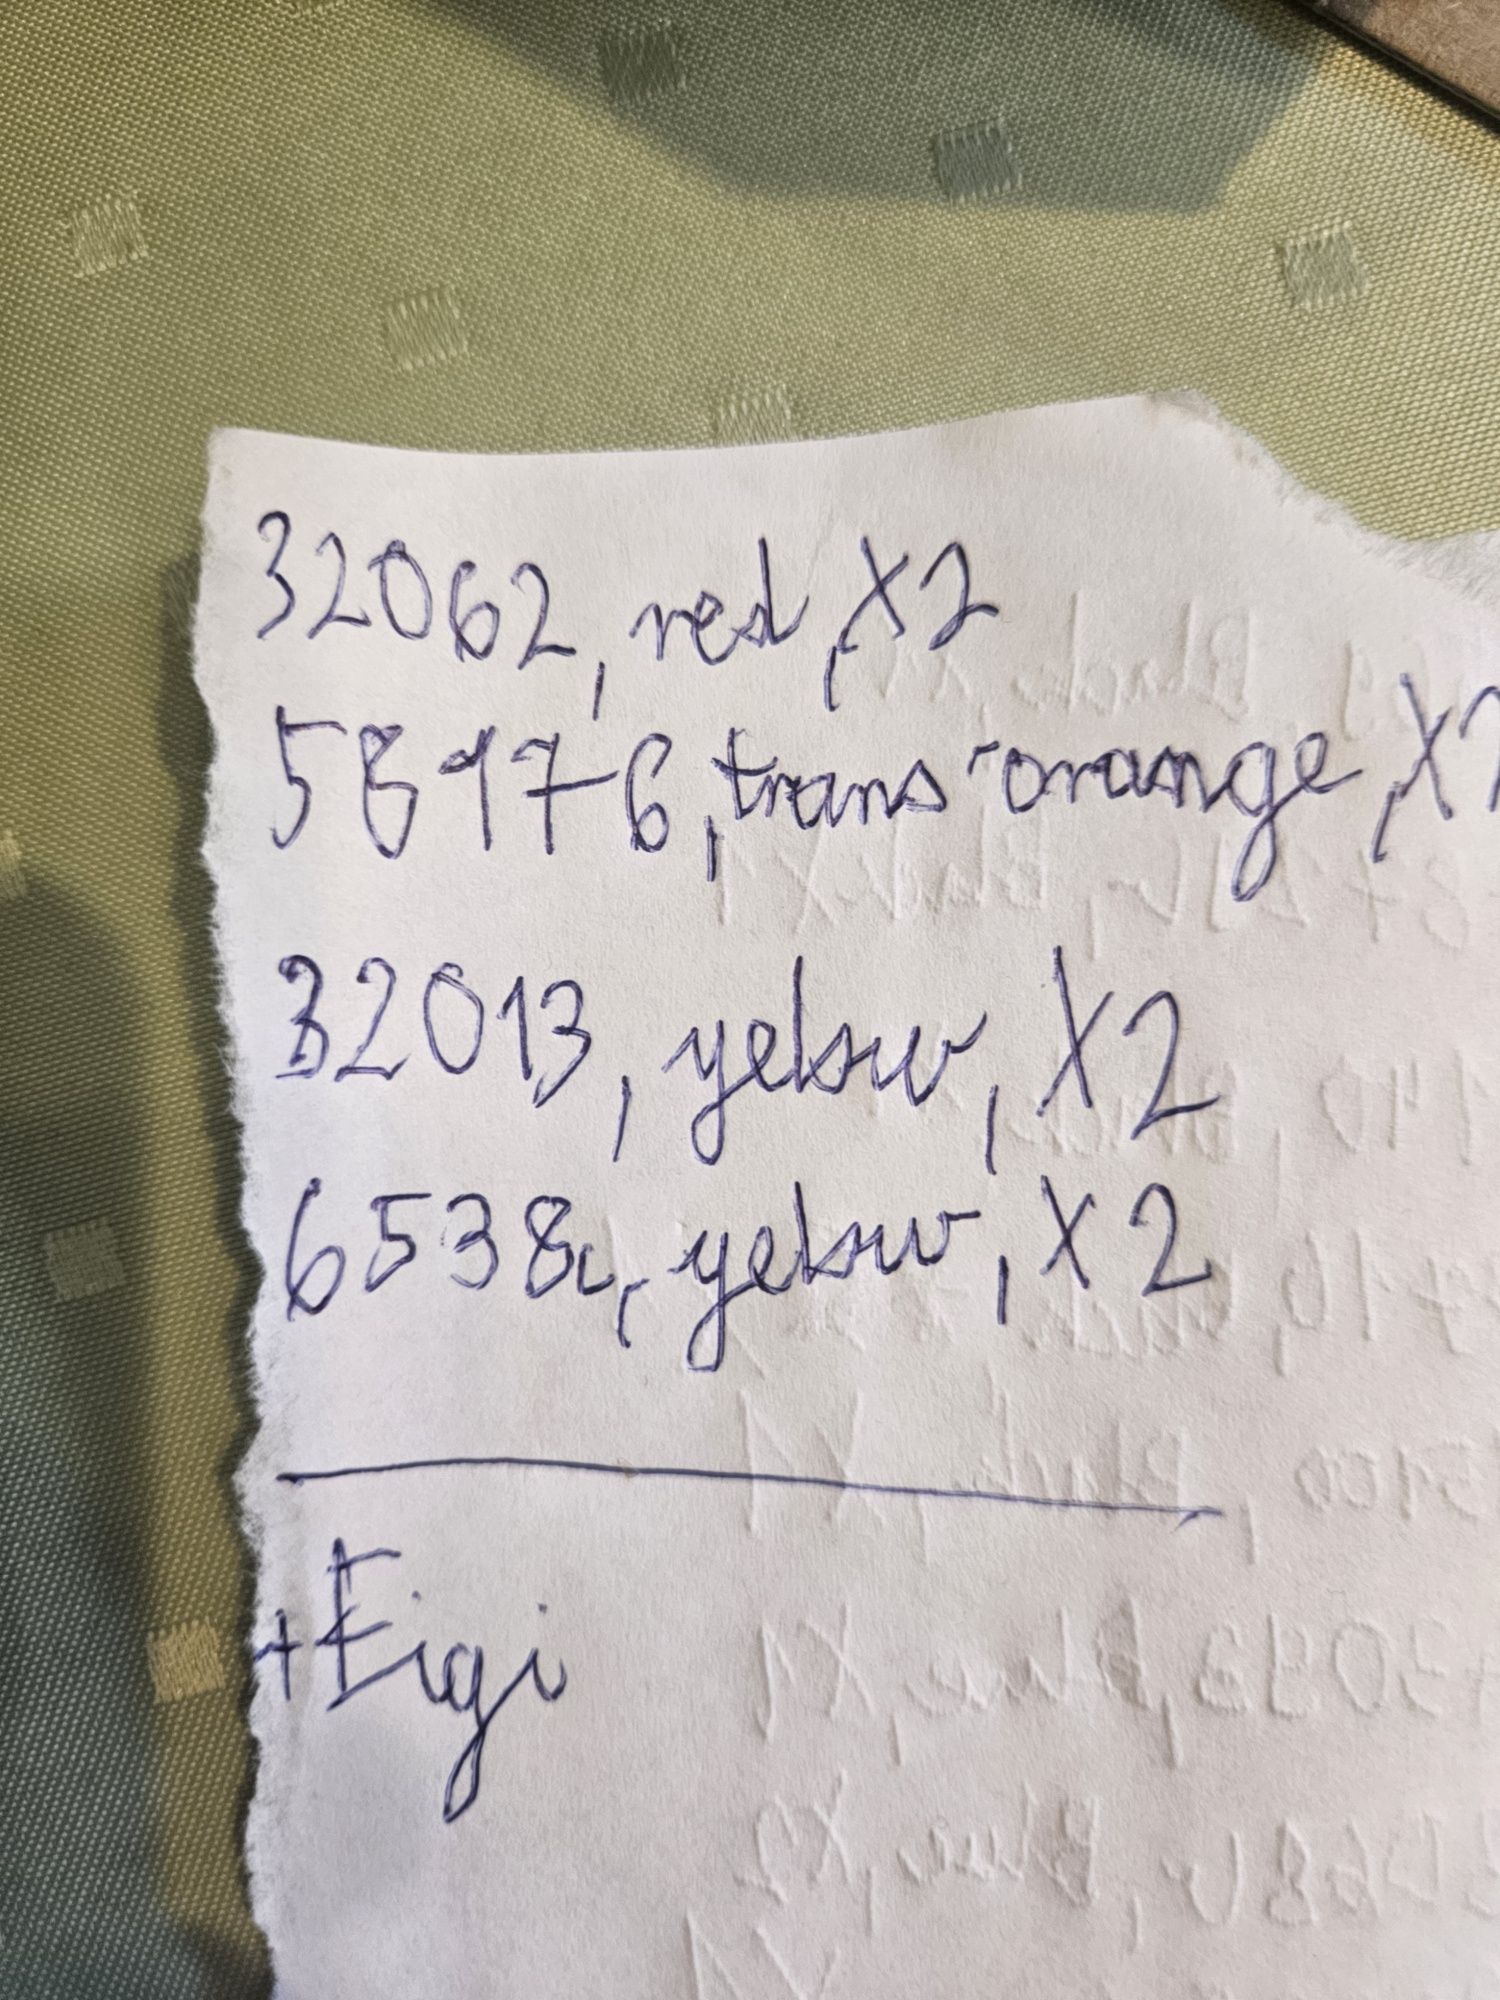 32062, red, X2
58176, trans-orange, X2
32013, yellow, X2
6538c, yellow, X2
+Eigi